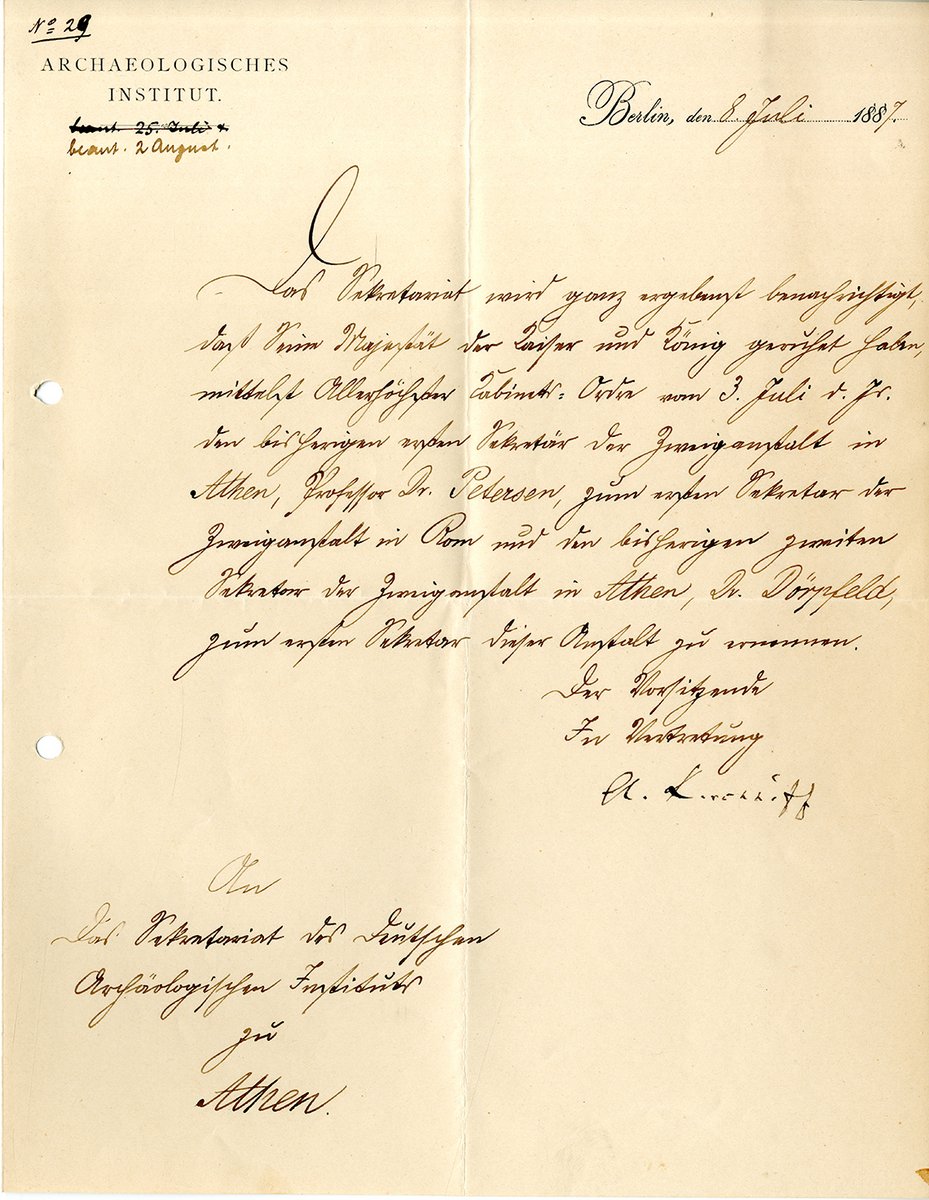 No 29
ARCHAEOLOGISCHES
INSTITUT.
beant. 25. Juli
beant. 2 August.
Berlin, den 8. Juli 1887.
Das Sekretariat wird ganz ergebenst benachrichtigt,
daß Seine Majestät der Kaiser und König geruhet haben,
mittelst Allerhöchster Kabinets-Ordre vom 3. Juli d. Js.
den bisherigen ersten Sekretär der Zweiganstalt in
Athen, Professor Dr. Petersen, zum ersten Sekretar der
Zweiganstalt in Rom und den bisherigen zweiten
Sekretar der Zweiganstalt in Athen, Dr. Dörpfeld,
zum ersten Sekretar dieser Anstalt zu ernennen.
Der Vorsitzende
In Vertretung
A. Kirchhoff
An
Das Sekretariat des Deutschen
Archäologischen Instituts
zu
Athen.